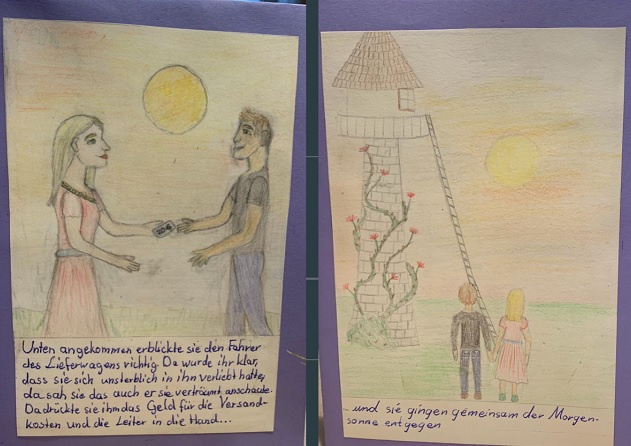 Unten angekommen erblickte sie den Fahrer
des Lieferwagens richtig. Da wurde ihr klar,
dass sie sich unsterblich in ihn verliebt hatte,
da sah sie das auch er sie verträumt anschaute.
Da drückte sie ihm das Geld für die Versand-
kosten und die Leiter in die Hand...
und sie gingen gemeinsam der Morgen-
sonne entgegen